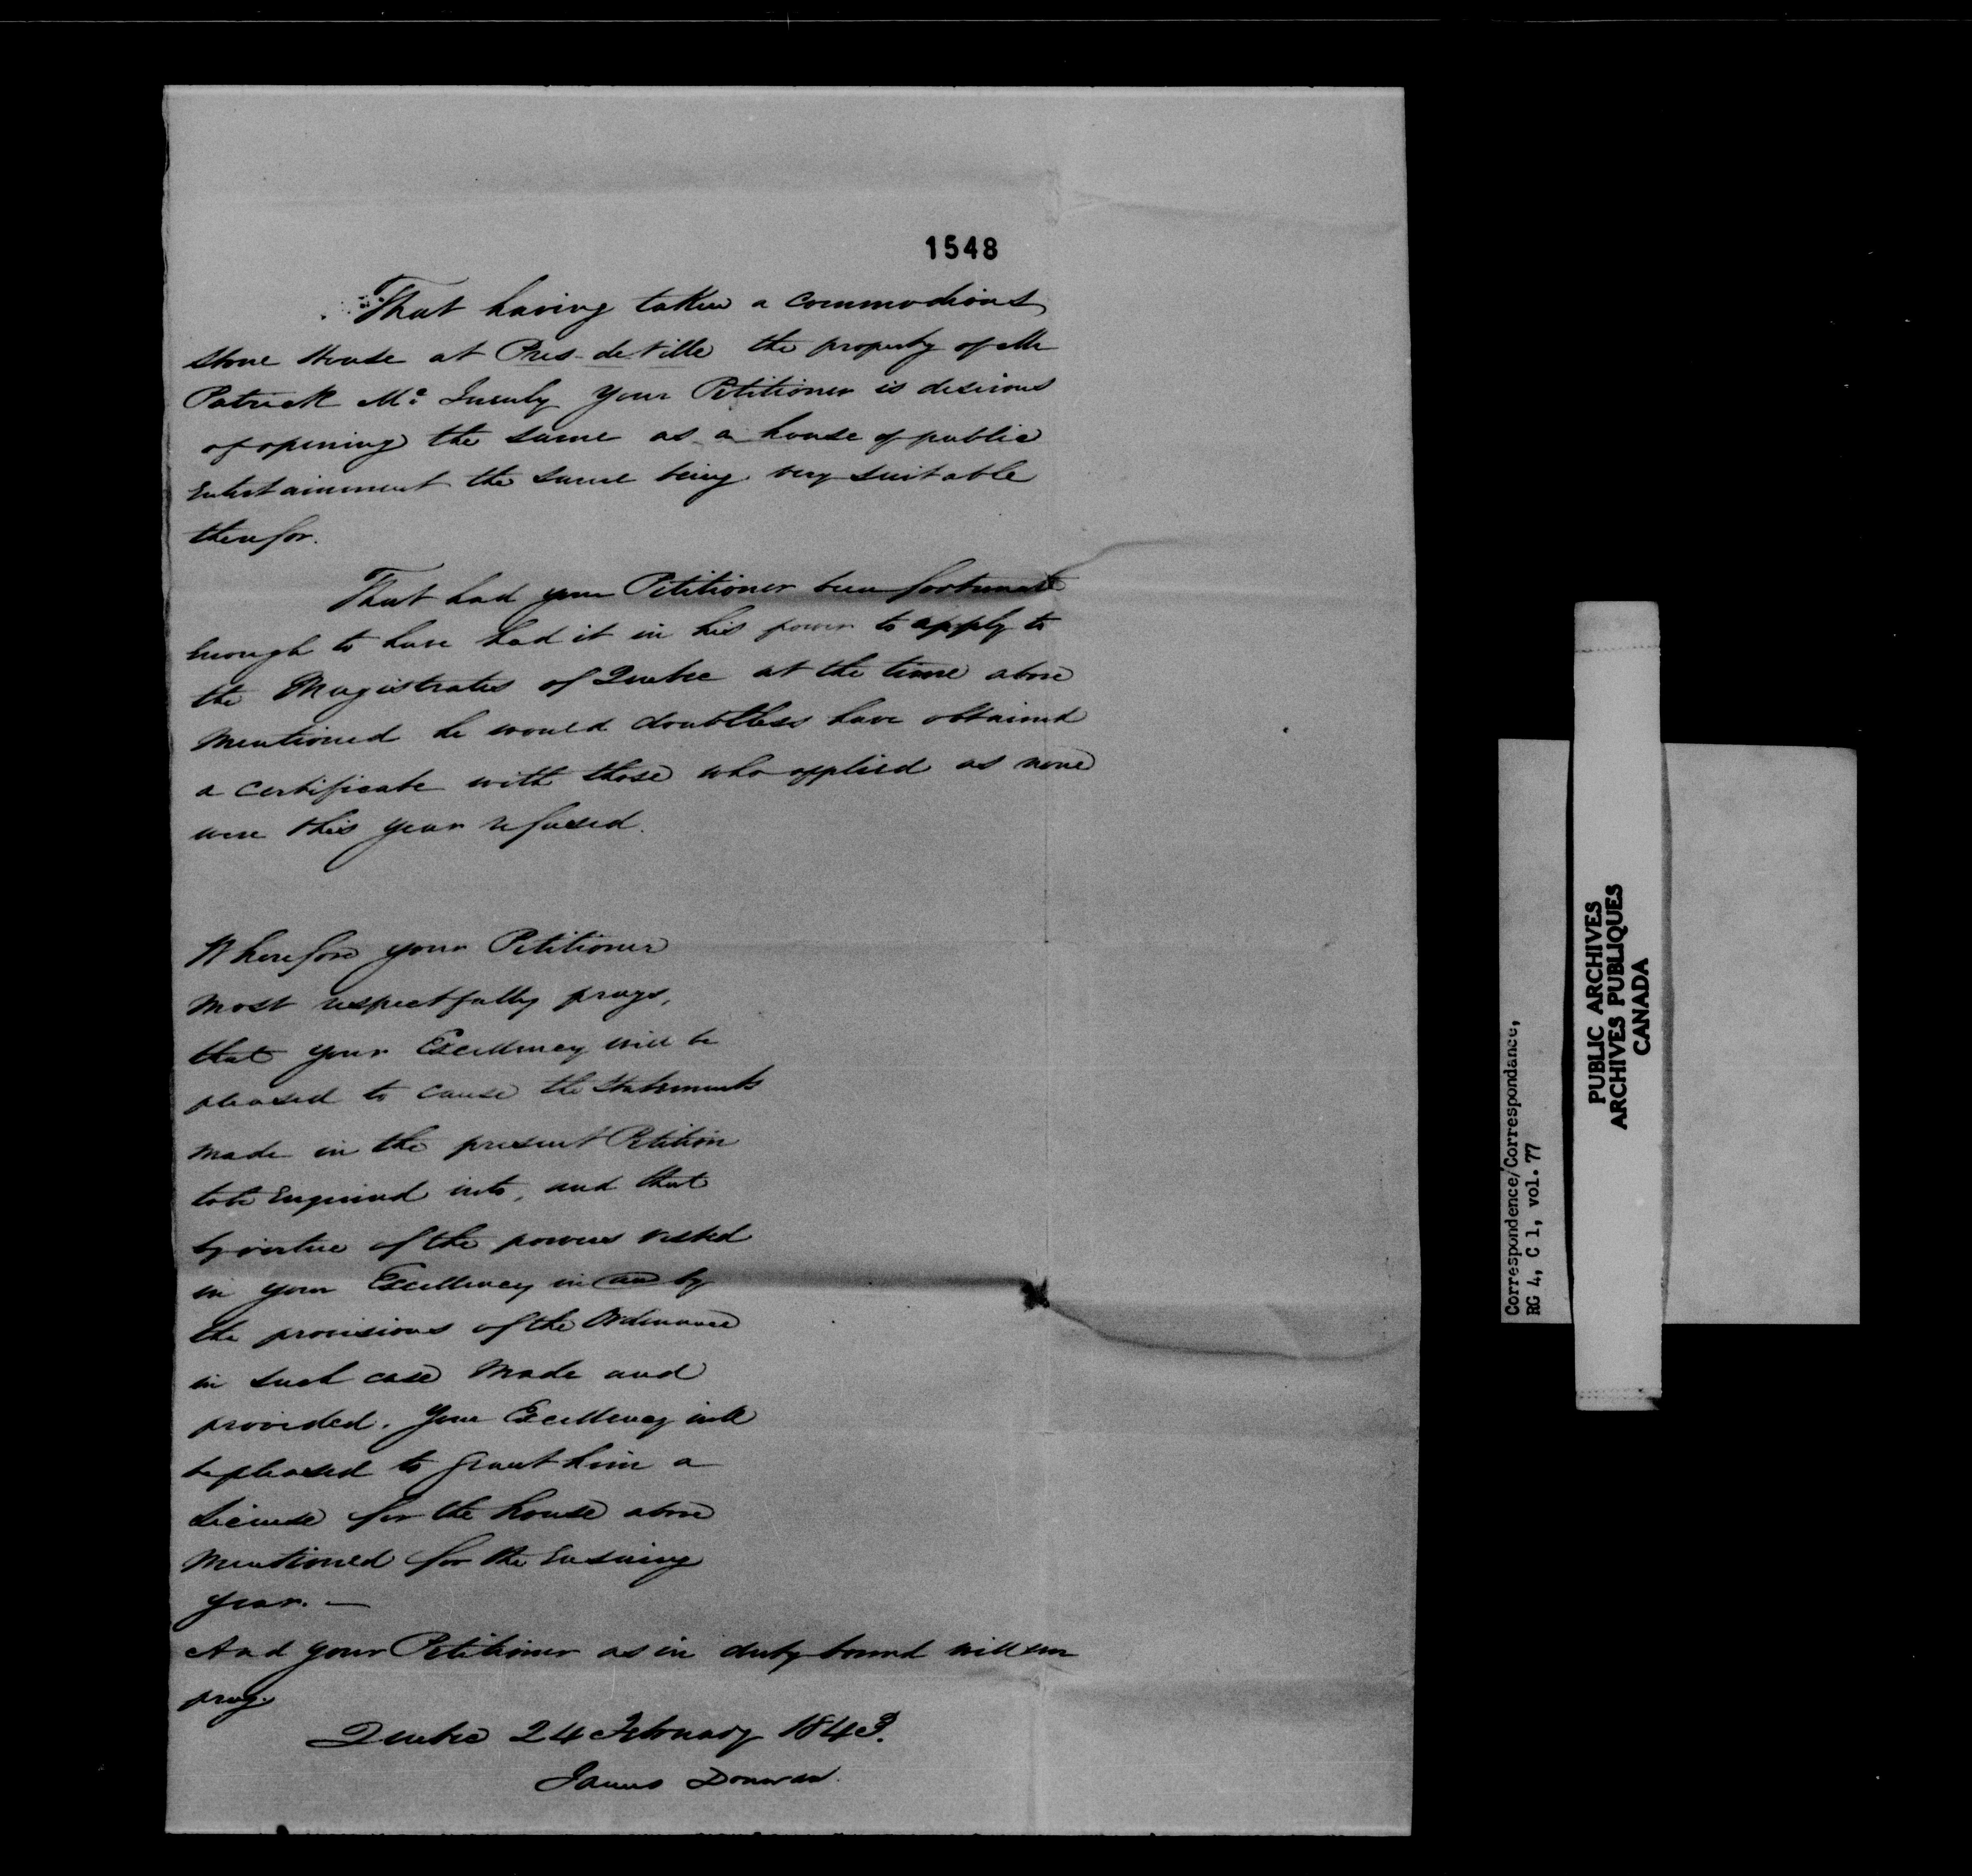 1548
That having taken a commodious
stone House at Pres-de-Ville the property of Mr
Patrick Mc. your Petitioner is desirous
of opening the same as a house of public
Entertainment the same being very suitable
therefor.
That had your Petitioner been fortunate
enough to have had it in his power to apply to
the Magistrates of Quebec at the time above
Mentioned he would doubtless have obtained
a Certificate with those who applied as none
were this year refused.
Wherefore your Petitioner
Most respectfully prays,
that your Excellency will be
pleased to cause the Statements
made in the present Petition
to be Enquired into, and that
by virtue of the powers vested
in your Excellency in and by
the provisions of the Ordinance
in such case Made and
provided. Your Excellency will
be pleased to Grant him a
License for the house above
Mentioned for the Ensuing
year. —
And your Petitioner as in duty bound will ever
pray.
Quebec 24 February 1843.
James Donovan.
Correspondence/Correspondance,
RG 4, C 1, vol. 77
PUBLIC ARCHIVES
ARCHIVES PUBLIQUES
CANADA